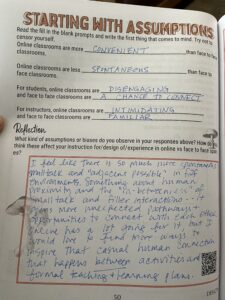 STARTING WITH ASSUMPTIONS
Read the fill in the blank prompts and write the first thing that comes to mind. Try not to
censor yourself.
Online classrooms are more CONVENIENT than face to face
classrooms.
Online classrooms are less SPONTANEOUS than face to
face classrooms.
For students, online classrooms are DISENGAGING
and face classrooms are A CHANCE TO CONNECT
For instructors, online classrooms are INTIMIDATING
face classrooms are FAMILIAR
Reflection
What kind of assumptions or biases do you observe in your responses above? How do
think these affect your instruction/for/design of experience in online vs face to face
I feel like there is so much more spontaneous
smalltalk and "adjacent possible" in f2f
environments. Something about human
proximity and the "in betweenness" of
small talk and filler interactions...it
opens more unexpected pathways +
opportunities to connect with each other.
Online has a lot going for it, but I
would love to find more ways to
insure that casual human connection
that happens between activities and
formal teaching + learning plans.
50